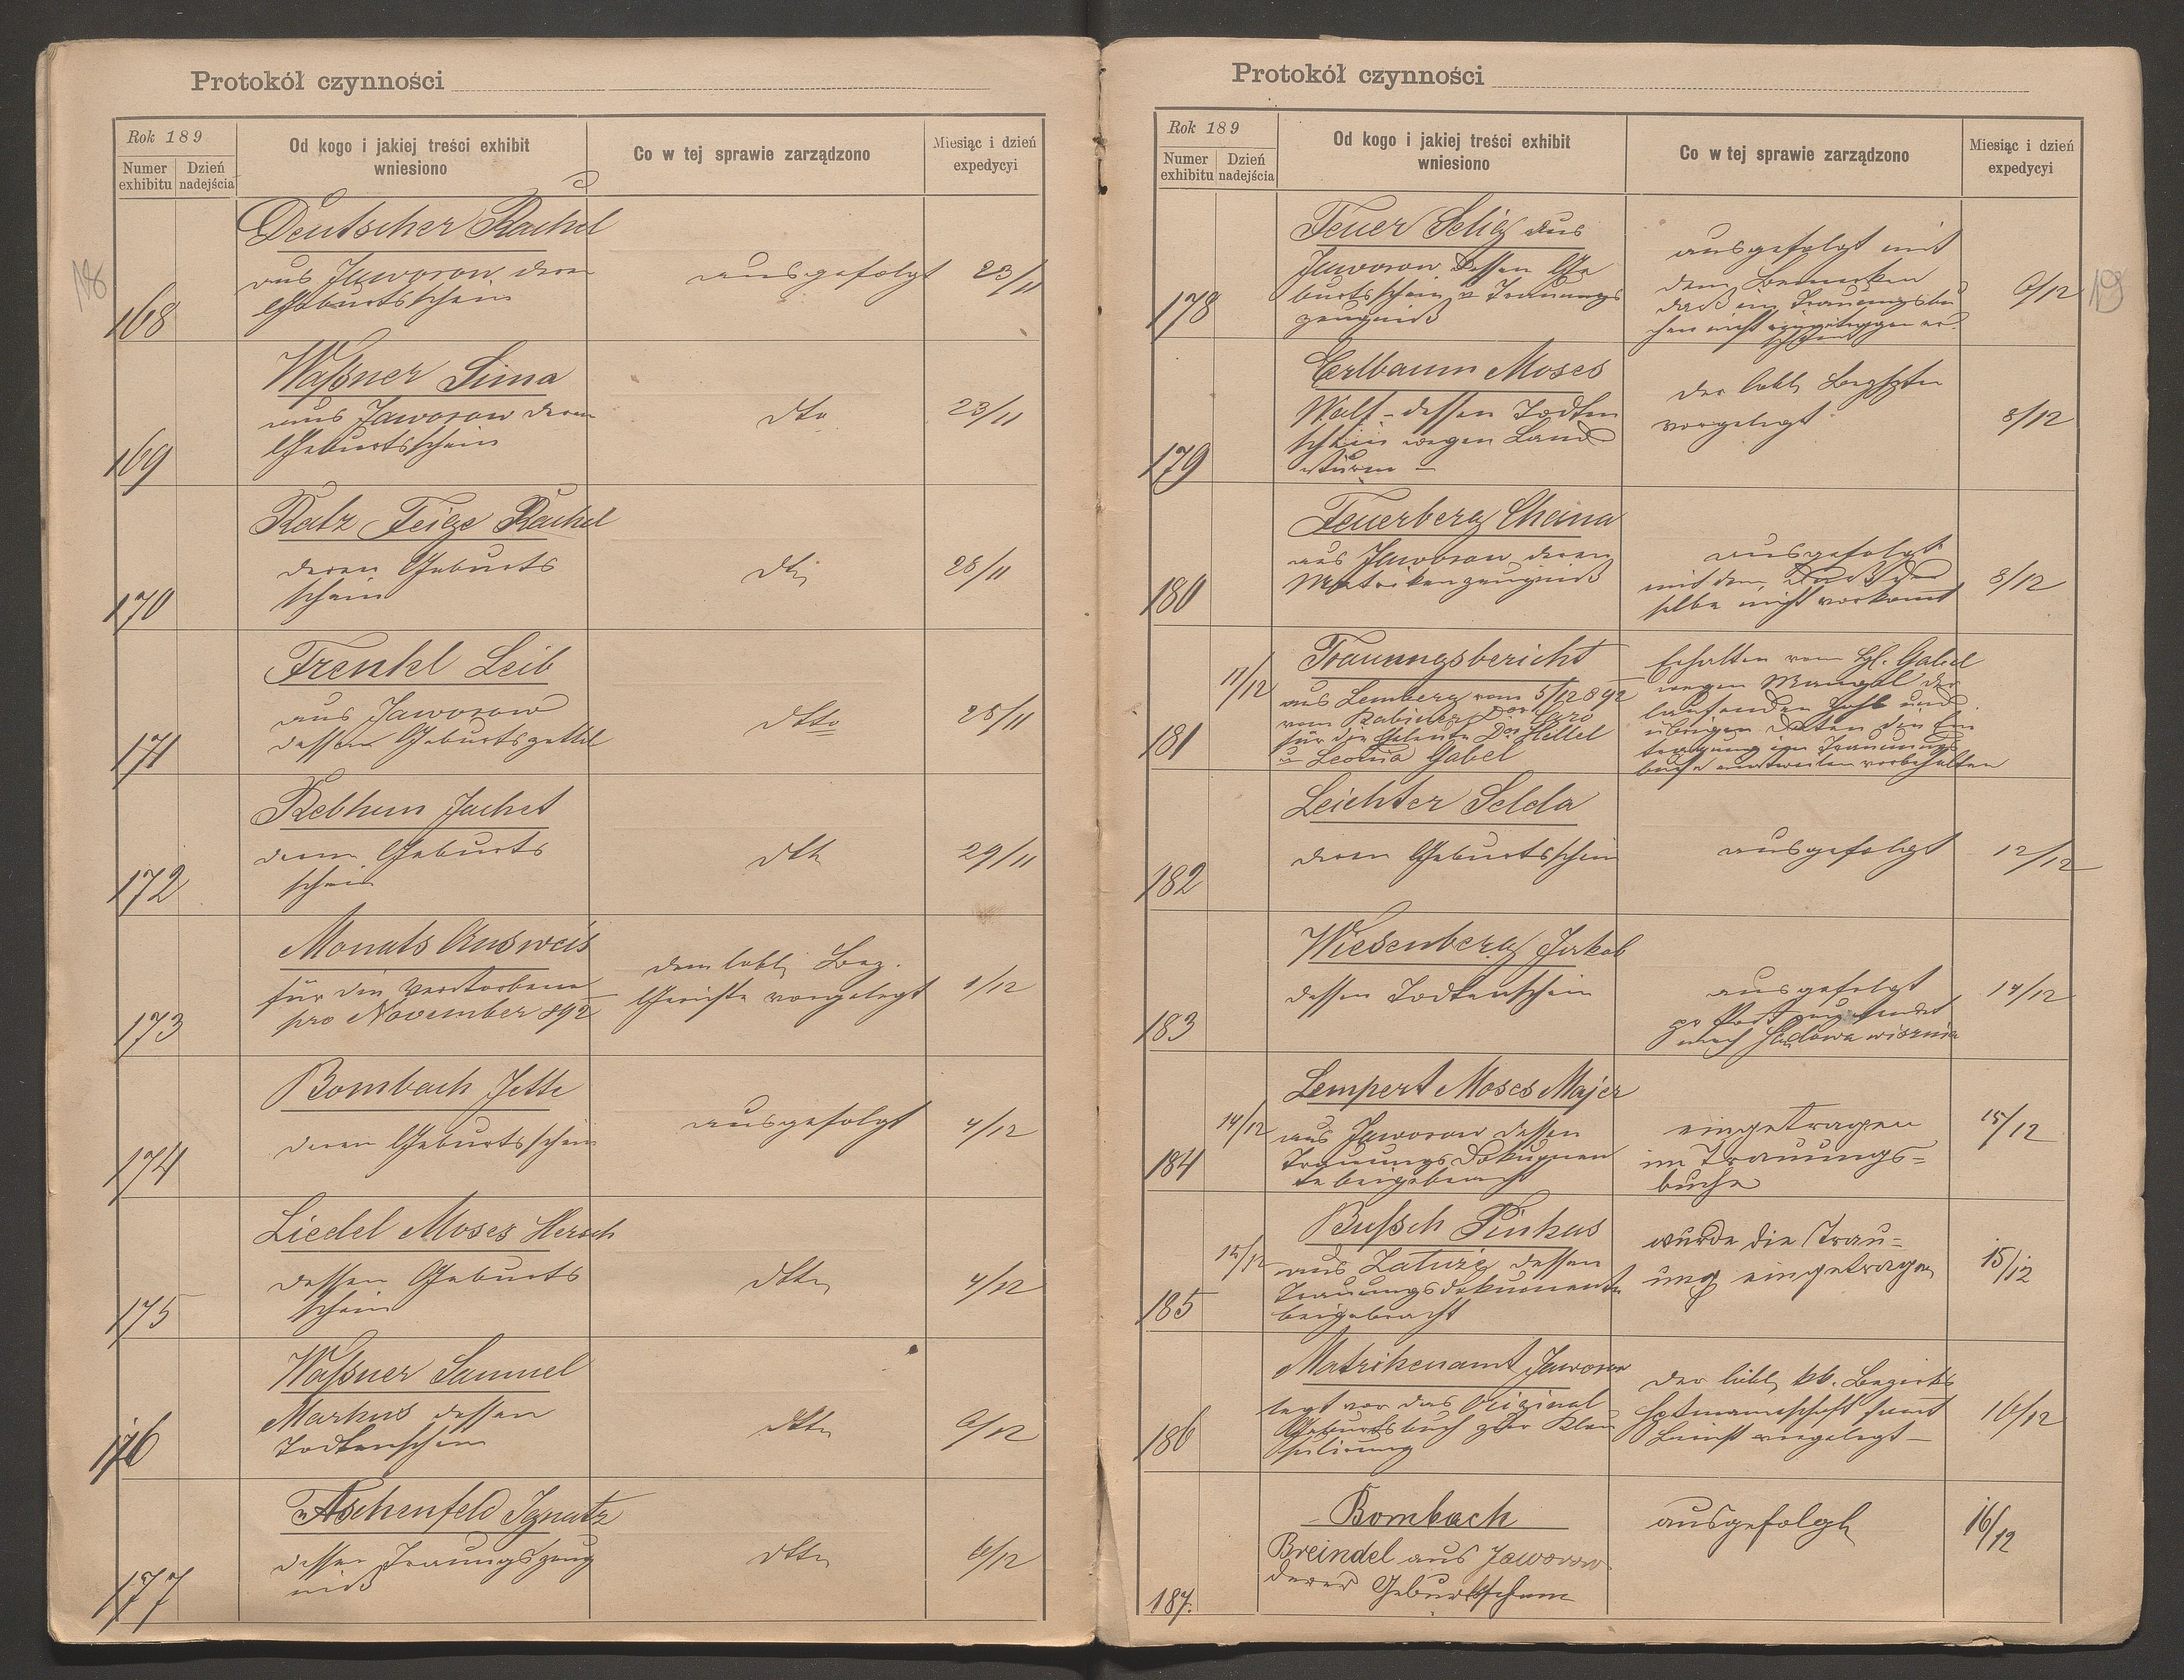 Protokół czynności
Rok 189
Numer exhibitu
Dzień nadejścia
Od kogo i jakiej treści exhibit
wniesiono
Co w tej sprawie zarządzono
Miesiąc i dzień
expedycyi
18
168
Deutscher Rachel
aus Jaworow deren
Geburtsschein
ausgefolgt
23/11
169
Waßner Sima
aus Jaworow deren
Geburtsschein
dto
23/11
170
Katz Feige Rachel
deren Geburts
schein
dto
28/11
171
Frenkel Leib
aus Jaworow
dessen Geburtszettel
dtto
28/11
172
Rebhun Jachet
deren Geburts
schein
dto
29/11
173
Monats Ausweis
für die Verstorbene
pro November 892
dem löbl Bez.
Gerichte vorgelegt
1/12
174
Bombach Jette
deren Geburtsschein
ausgefolgt
4/12
175
Liedel Moses Hersch
dessen Geburts
schein
dtto
4/12
176
Waßner Samuel
Markus dessen
Todtenschein
dtto
6/12
177
Aschenfeld Ignatz
dessen Trauungszeug
niß
dtto
6/12
Protokół czynności
Rok 189
Numer exhibitu
Dzień nadejścia
Od kogo i jakiej treści exhibit
wniesiono
Co w tej sprawie zarządzono
Miesiąc i dzień
expedycyi
19
178
Feuer Selig aus
Jaworow dessen Ge
burtsschein u Trauungs
zeugniß
ausgefolgt mit
dem Bemerken
daß im Trauungsbu
che nicht eingetragen er
scheint
6/12
179
Erlbaum Moses
Wolf - dessen Todten
schein wegen Land
sturm -
der löbl
vorgelegt
8/12
180
Feuerberg Chana
aus Jaworow deren
Matrikenzeugniß
ausgefolgt
mit dem, daß die
selbe nicht vorkommt
8/12
181
11/12
Trauungsbericht
aus Lemberg vom 5/12 892
vom Rabiner Dor Caro
für die Eheleute Dor Hillel
u Leonia Gabel
Erhalten vom Hl. Gabel
wegen Mangel der
laufenden Zahl und
übrigen Daten die Ein
tragung im Trauungs
buche einstweilen vorbehalten
182
Leichter Selda
deren Geburtsschein
ausgefolgt
12/12
183
Wiesenberg Jakob
dessen Todtenschein
ausgefolgt
pr Post zugesendet
nach Sadowa wisznia
14/12
184
14/12
Lempert Moses Majer
aus Jaworow dessen
Trauungs Dokumen
te beigebracht
eingetragen
im Trauungs=
buche
15/12
185
15/12
Bußch Pinkas
aus dessen
Trauungsdokumente
beigebracht
wurde die Trau=
ung eingetragen
15/12
186
Matrikenamt Jaworow
legt vor das Original
Geburtsbuch zur Klau
sulirung
der löbl kk. Bezirks
hptmannschaft samt
Bericht vorgelegt -
16/12
187.
Bombach
Breindel aus Jaworow
deren Geburtsschein
ausgefolgt
16/12